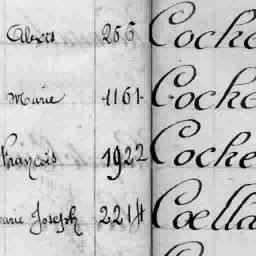 Albert 266 Cocke
Marie 1161 Cocke
François 1922 Cocke
Marie Joseph 2214 Coella